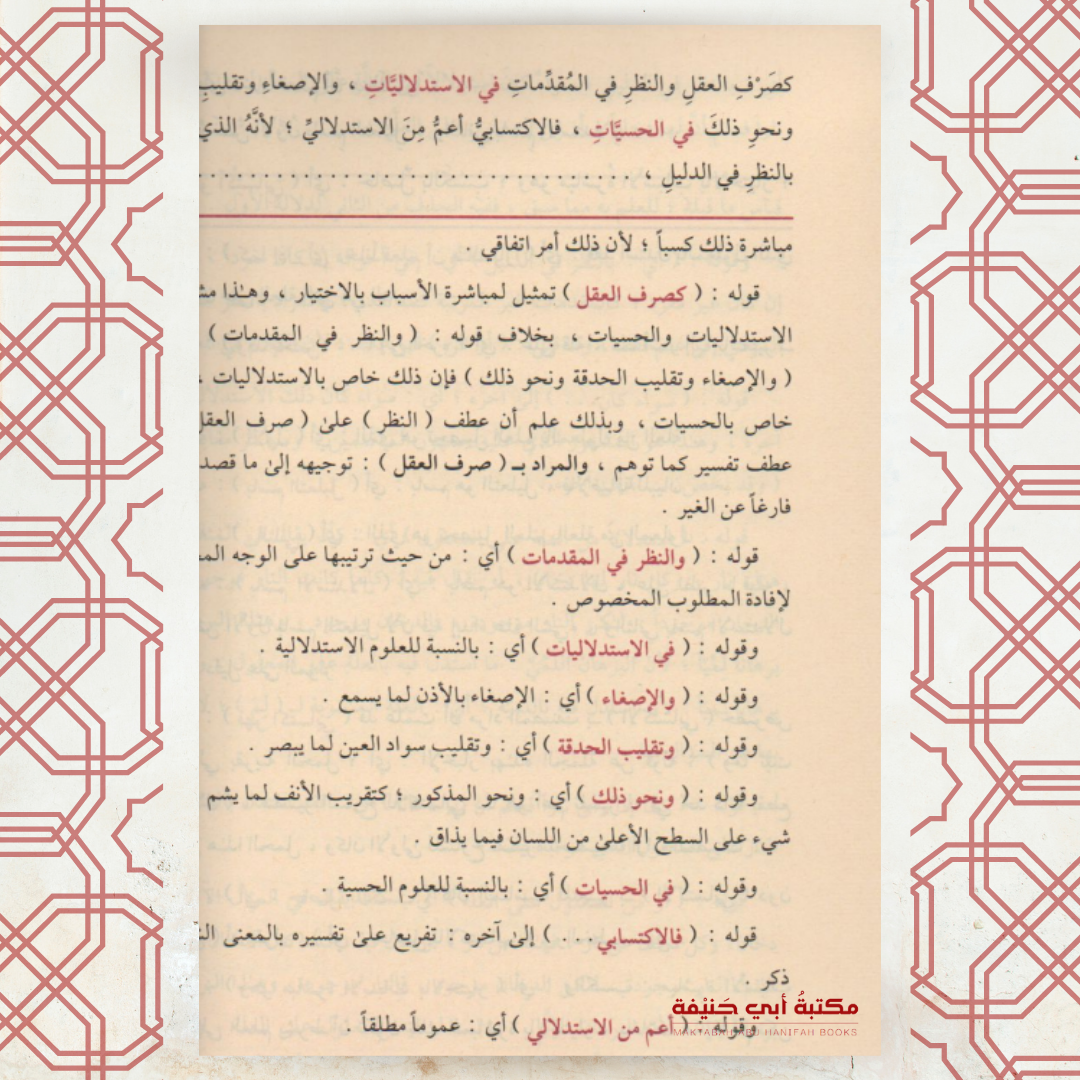 كصَرْفِ العقلِ والنظرِ في المُقدِّماتِ في الاستدلاليَّاتِ ، والإصغاءِ وتقليبِ
ونحوِ ذلكَ في الحسيَّاتِ ، فالاكتسابيُّ أعمُّ مِنَ الاستدلاليِّ ؛ لأنَّهُ الذي
بالنظرِ في الدليلِ ، . . . . . . . . . . . . . . . . . . . . . . . . . . . . . . . .
مباشرة ذلك كسباً ؛ لأن ذلك أمر اتفاقي .
قوله : ( كصرف العقل ) تمثيل لمباشرة الأسباب بالاختيار ، وهـٰذا
الاستدلاليات والحسيات ، بخلاف قوله : ( والنظر في المقدمات )
( والإصغاء وتقليب الحدقة ونحو ذلك ) فإن ذلك خاص بالاستدلاليات ،
خاص بالحسيات ، وبذلك علم أن عطف ( النظر ) علىٰ ( صرف العقل
عطف تفسير كما توهم ، والمراد بـ ( صرف العقل ) : توجيهه إلىٰ ما قصد
فارغاً عن الغير .
قوله : ( والنظر في المقدمات ) أي : من حيث ترتيبها على الوجه
لإفادة المطلوب المخصوص .
وقوله : ( في الاستدلاليات ) أي : بالنسبة للعلوم الاستدلالية .
وقوله : ( والإصغاء ) أي : الإصغاء بالأذن لما يسمع .
وقوله : ( وتقليب الحدقة ) أي : وتقليب سواد العين لما يبصر .
وقوله : ( ونحو ذلك ) أي : ونحو المذكور ؛ كتقريب الأنف لما يشم
شيء على السطح الأعلىٰ من اللسان فيما يذاق .
وقوله : ( في الحسيات ) أي : بالنسبة للعلوم الحسية .
قوله : ( فالاكتسابي . . . ) إلىٰ آخره : تفريع علىٰ تفسيره بالمعنى
ذكر .
وقوله : ( أعم من الاستدلالي ) أي : عموماً مطلقاً .
مكتبةُ أبي حَنيْفة
MAKTABAH ABU HANIFAH BOOKS